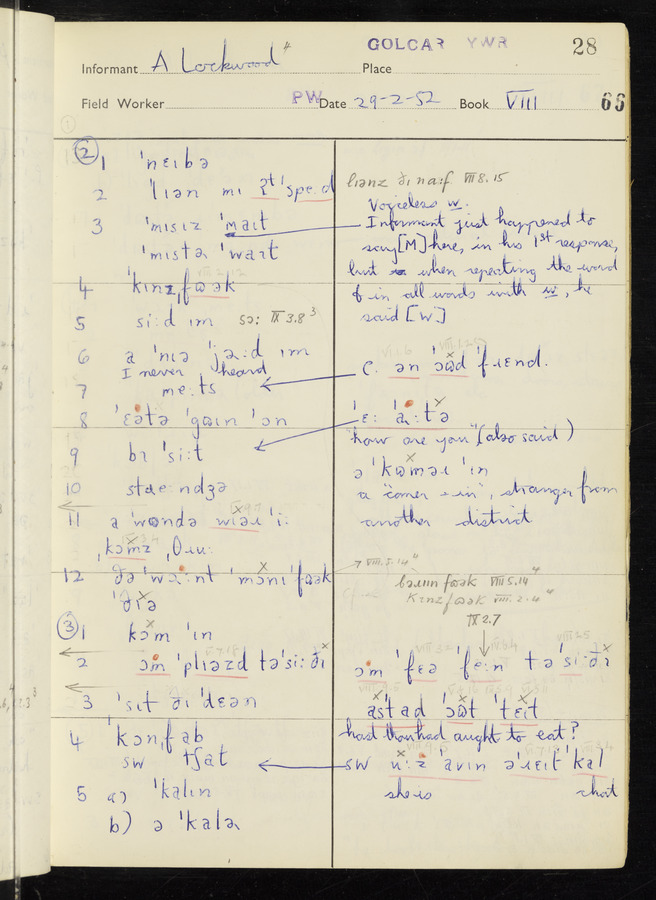 GOLCAR YWR 28
Informant A Lockwood Place
Field Worker PW Date 29-2-52 Book VIII 66
② 1 ˈnɛɪbə
2 ˈlɪən mɪ ˈspe.d
3 ˈmɪsɪz ˈmaɪt
ˈmɪstə ˈwaɪt
4 ˈkɪnzˌfʊək
5 si:d ɪm sɔ: IX 3.8³
6 a ˈnɪə ˈjə:d ɪm
I never heard
7 me:ts
8 ˈɛətə ˈgɔɪn ˈɔn
9 bɪ ˈsi:t
10 strɛ·ndʒə
11 a ˈwʊndə wɪəɪ ˈi:
ˌkɔmz ˌθɹu:
12 ðə ˈwɔ:nt ˈmɔnɪ ˈfʊək
ˈðɪə
③ 1 kɔm ˈɪn
2 ɔm ˈplɪəzd təˈsi:ðɪ
3 ˈsɪt ðɪ ˈdɛən
4 ˈkɔnɪf ab
sw tʃat
5 a) ˈkalɪn
b) ə ˈkalə
lɪənz ðɪ na:f VIII 8.15
Voiceless w.
Informant just happened to
say [M] here, in his 1st response,
but when repeating the word
& in all words with w, he
said [W]
c. ən ˈɔʊd ˈfɹɛnd.
ˈɛ: ˈa:tə
"how are you" (also said)
ə ˈkʊməɹ ˈɪn
a "comer-in", stranger from
another district
VIII.1.14
bəɹɪɪn fʊək VIII 5.14
kɪnzfʊək VIII.2.4
IX 2.7
ɔm ˈfɛə ˈfe:n təˈsi:ðɪ
astad ˈɔʊt ˈtɛɪt
hast thou had aught to eat?
sw ʊ:z avɪn əˈɹɛɪt ˈkal
she is chat